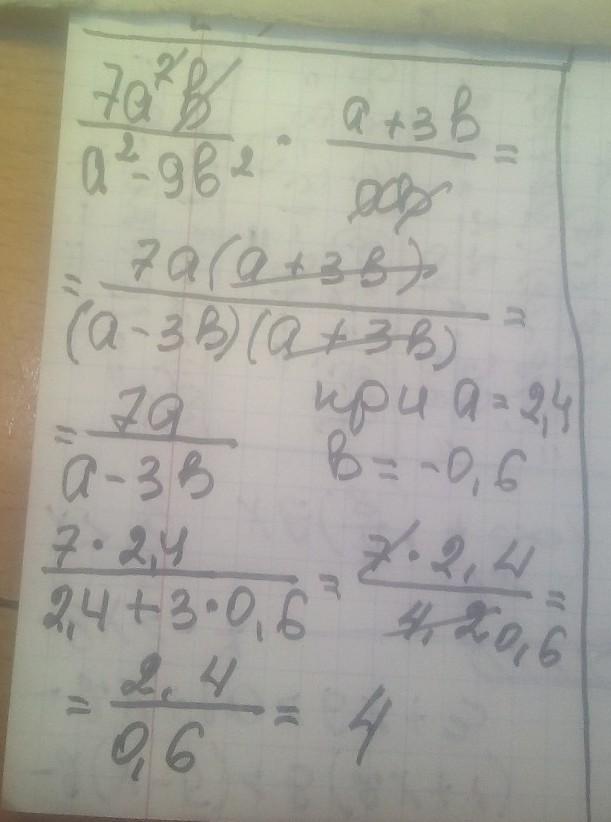 7a²b / a² - 9b² · a + 3b / ab =
= 7a(a + 3b) / (a - 3b)(a + 3b) =
= 7a / a - 3b при a = 2,4
b = -0,6
7 · 2,4 / 2,4 + 3 · 0,6 = 7 · 2,4 / 4,2 0,6 =
= 2,4 / 0,6 = 4